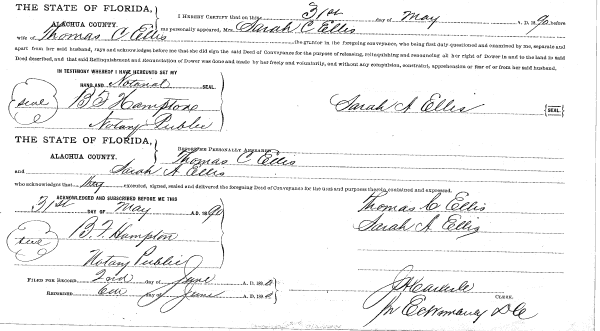 THE STATE OF FLORIDA,
ALACHUA COUNTY.
I HEREBY CERTIFY that on this 31st day of May A. D. 1890, before
me personally appeared, Mrs. Sarah C Ellis
wife of Thomas C Ellis the grantor in the foregoing conveyance, who being first duly questioned and examined by me, separate and
apart from her said husband, says and acknowledges before me that she did sign the said Deed of Conveyance for the purpose of releasing, relinquishing and renouncing all her right of Dower in and to the land in said
Deed described, and that said Relinquishment and Renunciation of Dower was done and made by her freely and voluntarily, and without any compulsion, constraint, apprehension or fear of or from her said husband.
IN TESTIMONY WHEREOF I HAVE HEREUNTO SET MY
HAND AND Notarial SEAL.
Seal
B F Hampton
Notary Public
Sarah A Ellis {SEAL}
THE STATE OF FLORIDA,
ALACHUA COUNTY.
PERSONALLY APPEARED
Thomas C Ellis
and Sarah A Ellis
who acknowledges that they executed, signed, sealed and delivered the foregoing Deed of Conveyance for the uses and purposes therein contained and expressed.
ACKNOWLEDGED AND SUBSCRIBED BEFORE ME THIS
31st DAY OF May A. D. 1890
Seal
B. F. Hampton
Notary Public
Thomas C Ellis
Sarah A Ellis
FILED FOR RECORD 2nd day of June A. D. 1890
RECORDED 6th day of June A. D. 1890
CLERK.
D C